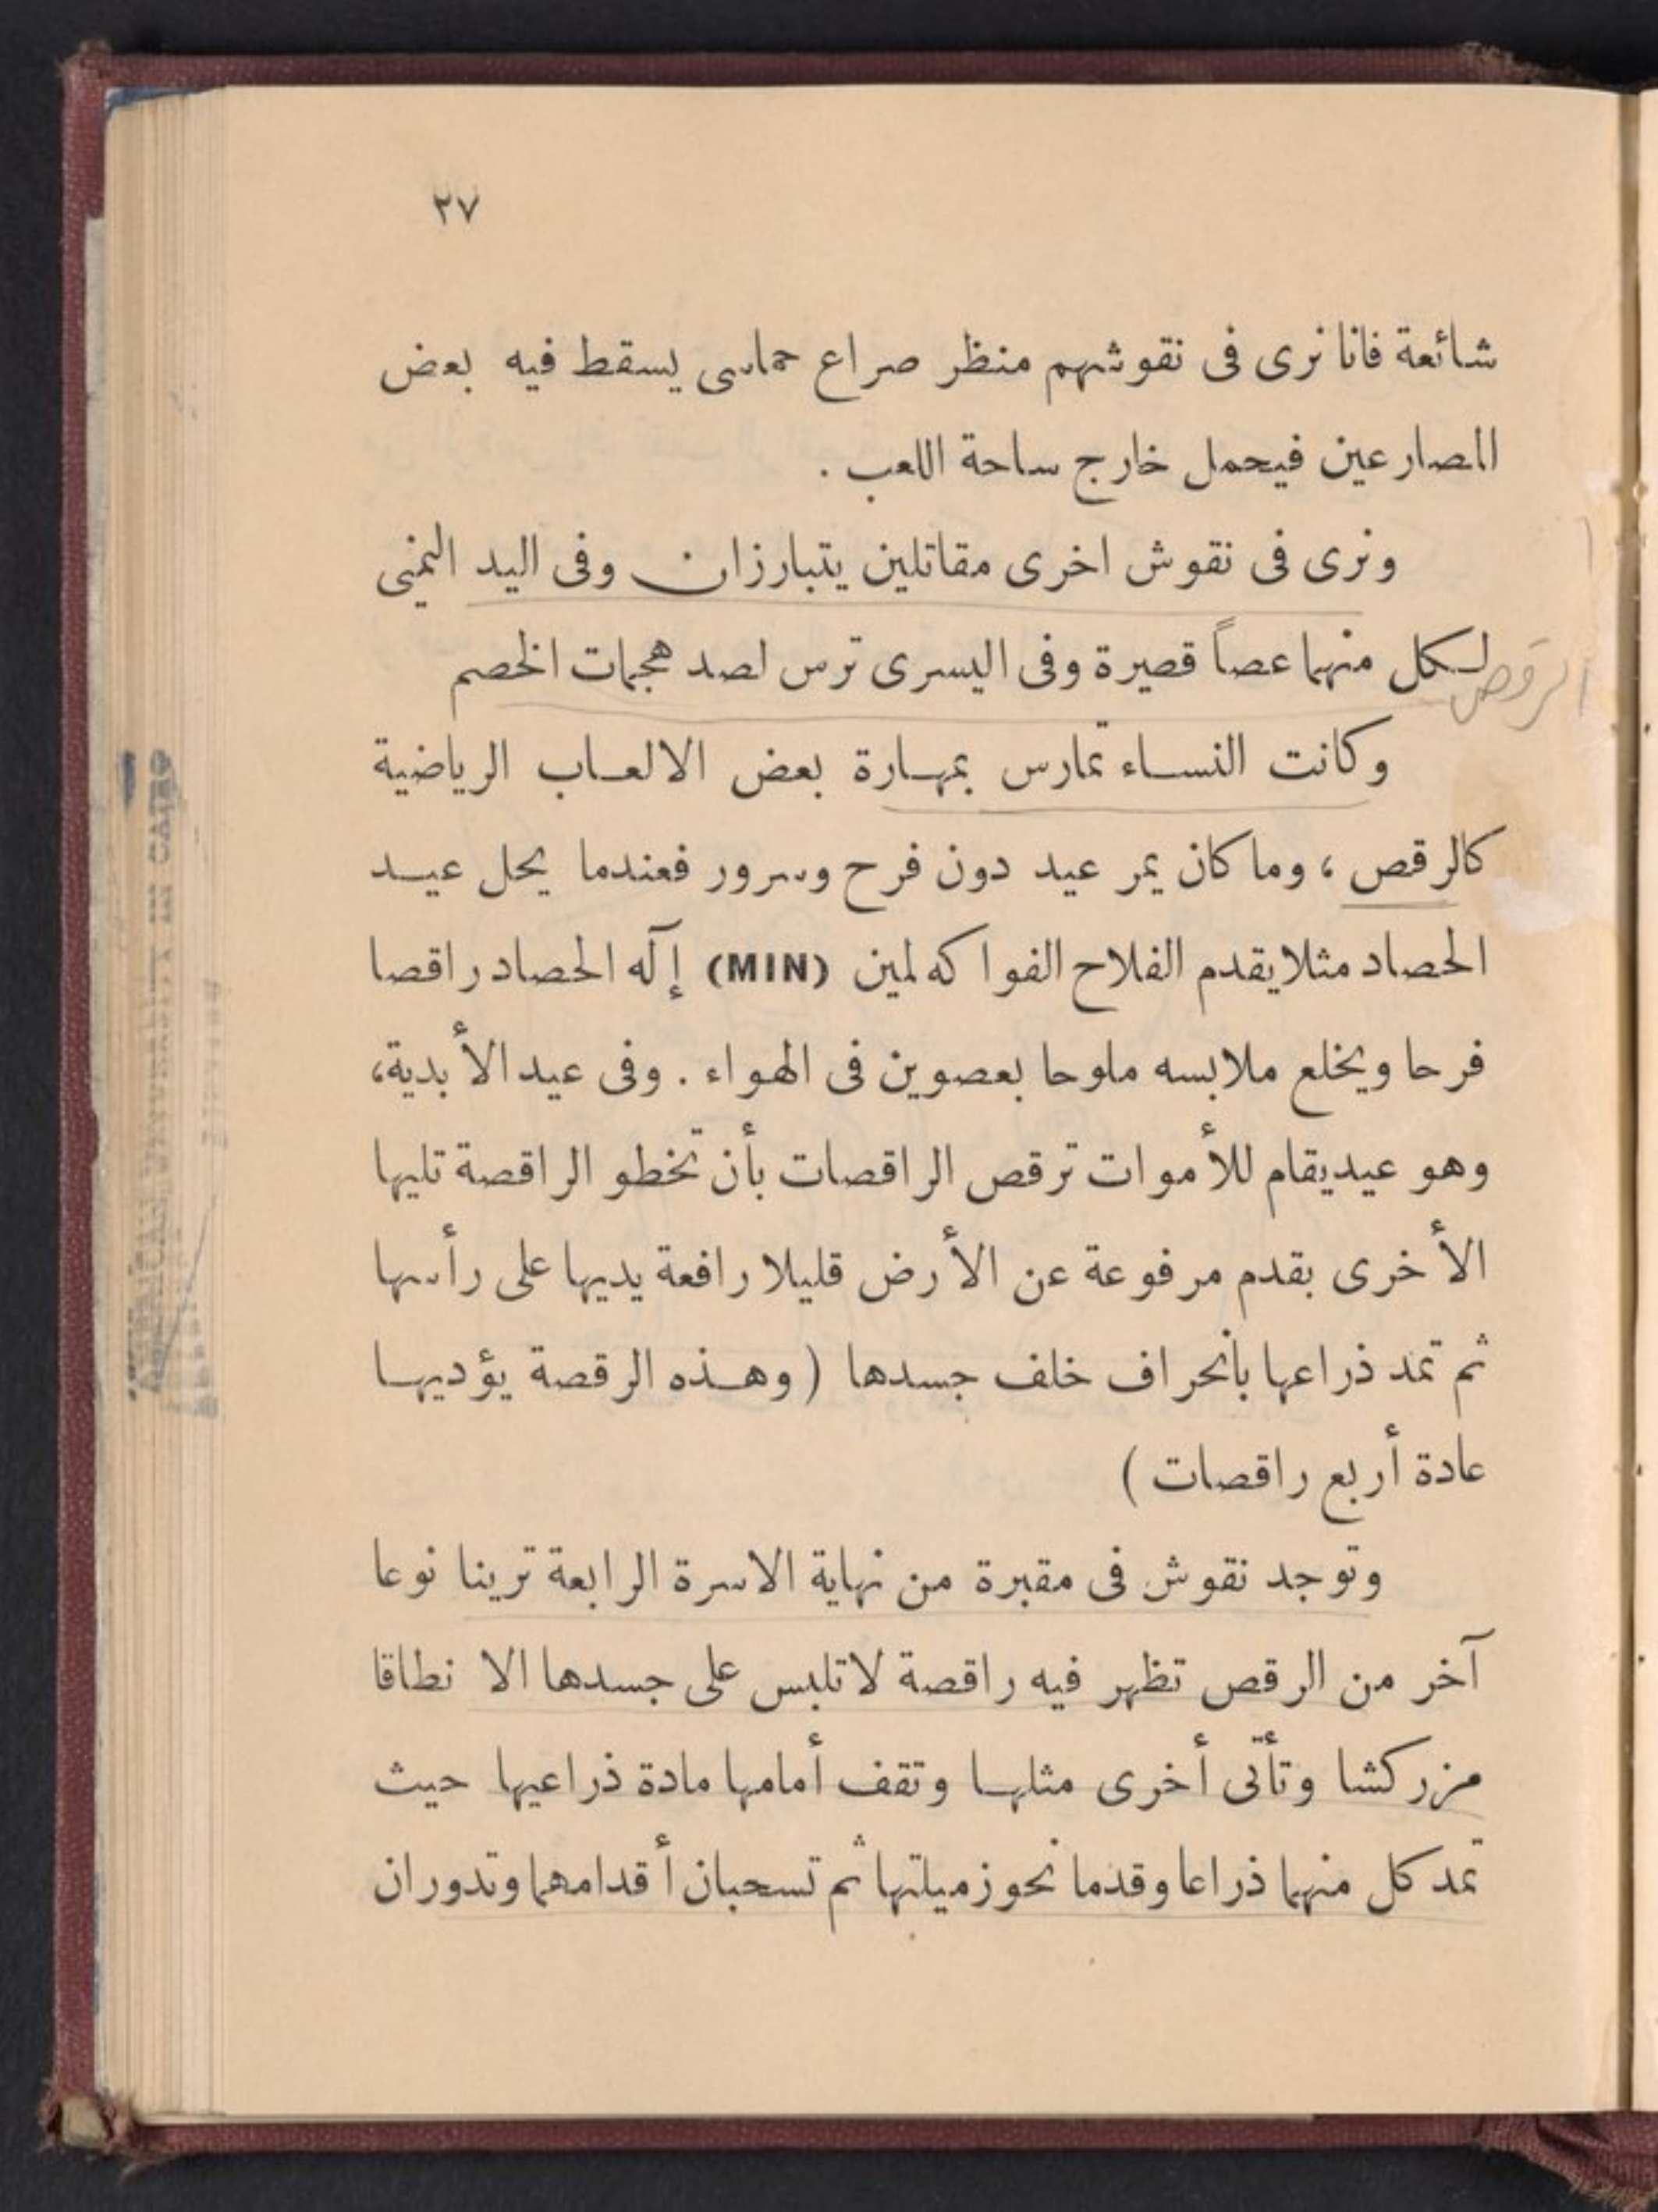 ٢٧
شائعة فانا نرى فى نقوشهم منظر صراع حماسى يسقط فيه بعض
المصارعين فيحمل خارج ساحة اللعب .
ونرى فى نقوش اخرى مقاتلين يتبارزان وفى اليد اليمنى
لكل منهما عصاً قصيرة وفى اليسرى ترس لصد هجمات الخصم
الرقص
وكانت النساء تمارس بمهارة بعض الالعاب الرياضية
كالرقص ، وما كان يمر عيد دون فرح وسرور فعندما يحل عيد
الحصاد مثلا يقدم الفلاح الفواكه لمين (MIN) إلٓه الحصاد راقصا
فرحا ويخلع ملابسه ملوحا بعصوين فى الهواء . وفى عيد الأبدية،
وهو عيد يقام للأموات ترقص الراقصات بأن تخطو الراقصة تليها
الأخرى بقدم مرفوعة عن الأرض قليلا رافعة يديها على رأسها
ثم تمد ذراعها بانحراف خلف جسدها ( وهذه الرقصة يؤديها
عادة أربع راقصات )
وتوجد نقوش فى مقبرة من نهاية الاسرة الرابعة ترينا نوعا
آخر من الرقص تظهر فيه راقصة لا تلبس على جسدها الا نطاقا
مزركشا وتأتى أخرى مثلها وتقف أمامها مادة ذراعيها حيث
تمد كل منهما ذراعا وقدما نحو زميلتها ثم تسحبان أقدامهما وتدوران